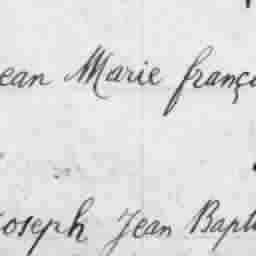 ean Marie franç
oseph Jean Bapt